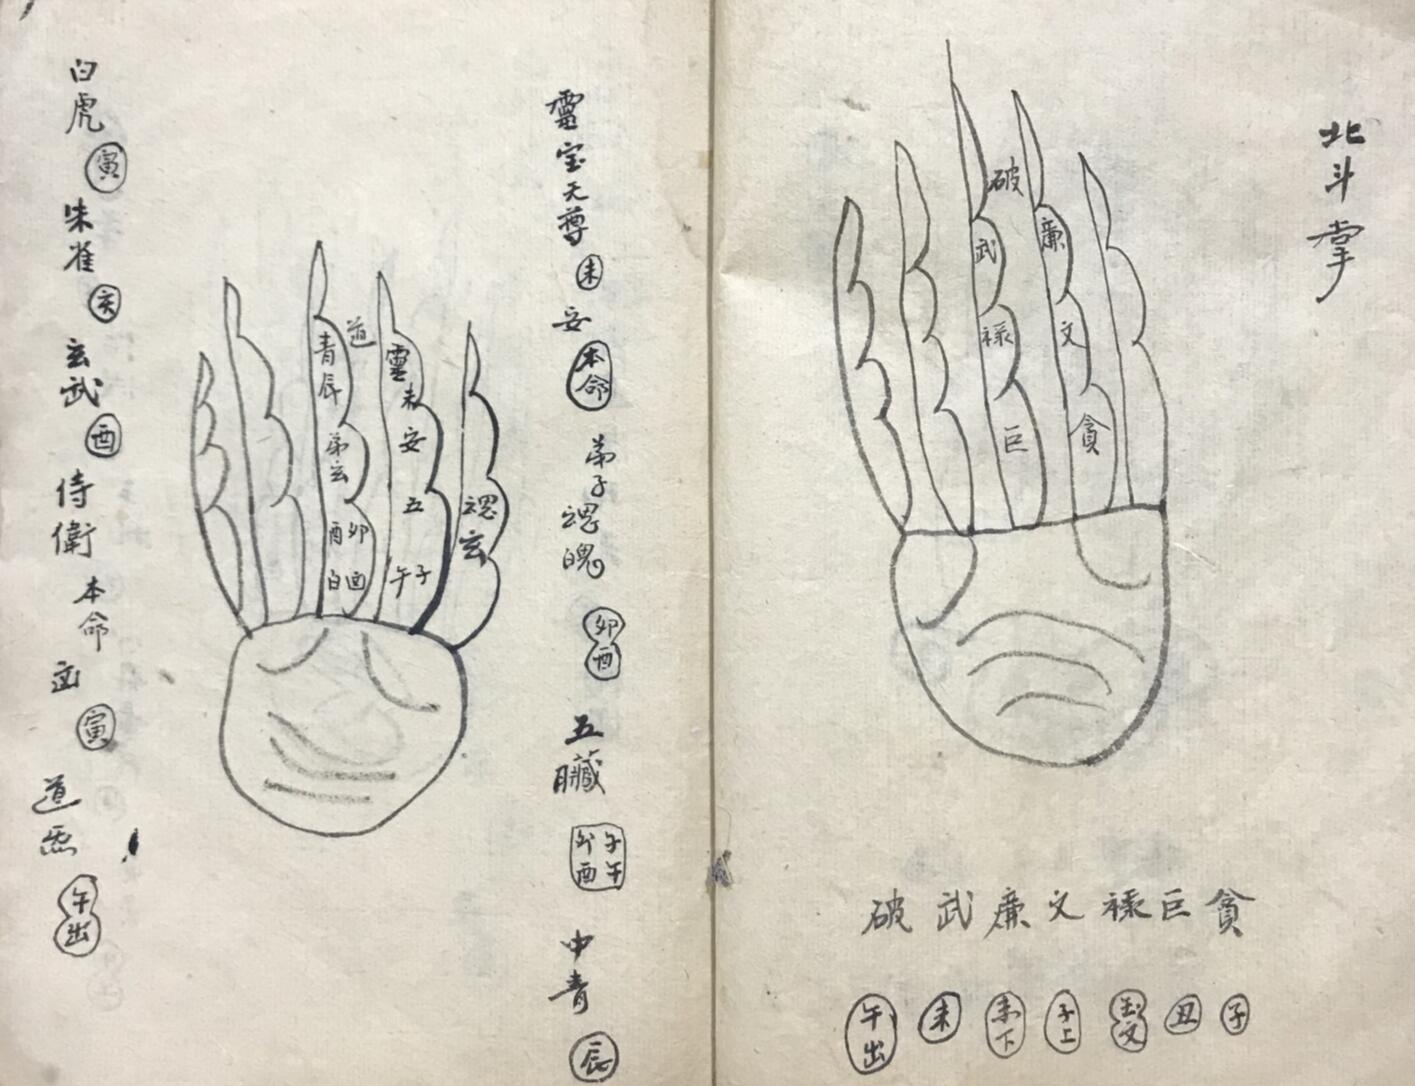 北斗掌
破
廉
武
文
祿
貪
巨
貪巨祿文廉武破
子
丑
子上
未下
未
午出
靈宝天尊 未 安 本命 弟子魂魄 卯酉 五臟 子午卯酉 中青 辰
道
青辰
靈未
安
弟玄
五
魂玄
酉卯
白
午子
白虎 寅 朱雀 亥 玄武 酉 侍衛 本命 寅 道炁 午出